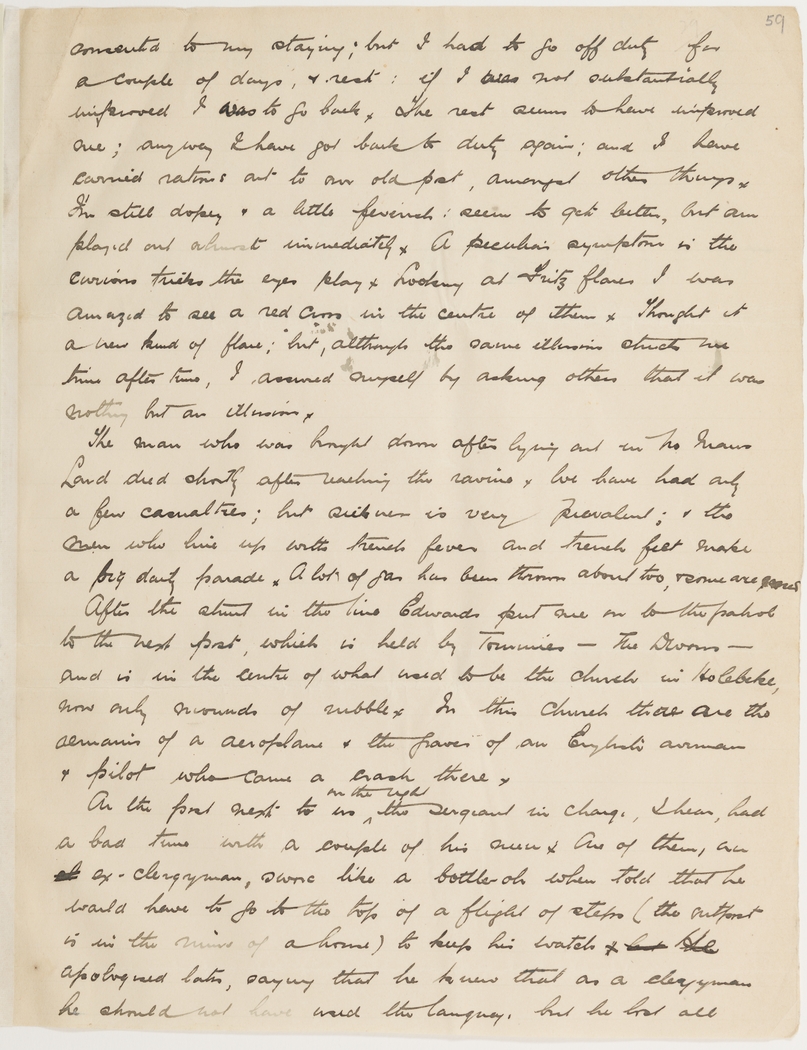 59
consented to my staying; but I had to go off duty for
a couple of days, & rest: if I was not substantially
improved I was to go back x The rest seems to have improved
me; anyway I have got back to duty again; and I have
carried rations out to our old post, amongst other things x
I'm still dopey & a little feverish: seem to get better, but am
played out almost immediately x A peculiar symptom is the
curious tricks the eyes play x Looking at Fritz flares I was
amazed to see a red cross in the centre of them x Thought it
a new kind of flare; but, although the same illusion struck me
time after time, I assured myself by asking others that it was
nothing but an illusion x
The man who was brought down after lying out in No Mans
Land died shortly after reaching the ravine x We have had only
a few casualties; but sickness is very prevalent; & the
men who line up with trench fever and trench feet make
a big daily parade x A lot of gas has been thrown about too, & some are
After the stunt in the line Edwards put me on to the patrol
to the next post, which is held by Tommies — The Devons —
and is in the centre of what used to be the church in Holebeke,
now only mounds of rubble x In this church there are the
remains of a aeroplane & the graves of an English airman
& pilot who came a crash there x
At the post next to us on the right, the sergeant in charge, I hear, had
a bad time with a couple of his men x One of them, an
ex-clergyman, swore like a bottle-oh when told that he
would have to go to the top of a flight of steps (the outpost
is in the ruins of a house) to keep his watch x but He
apologised later, saying that he knew that as a clergyman
he should not have used the language, but he lost all